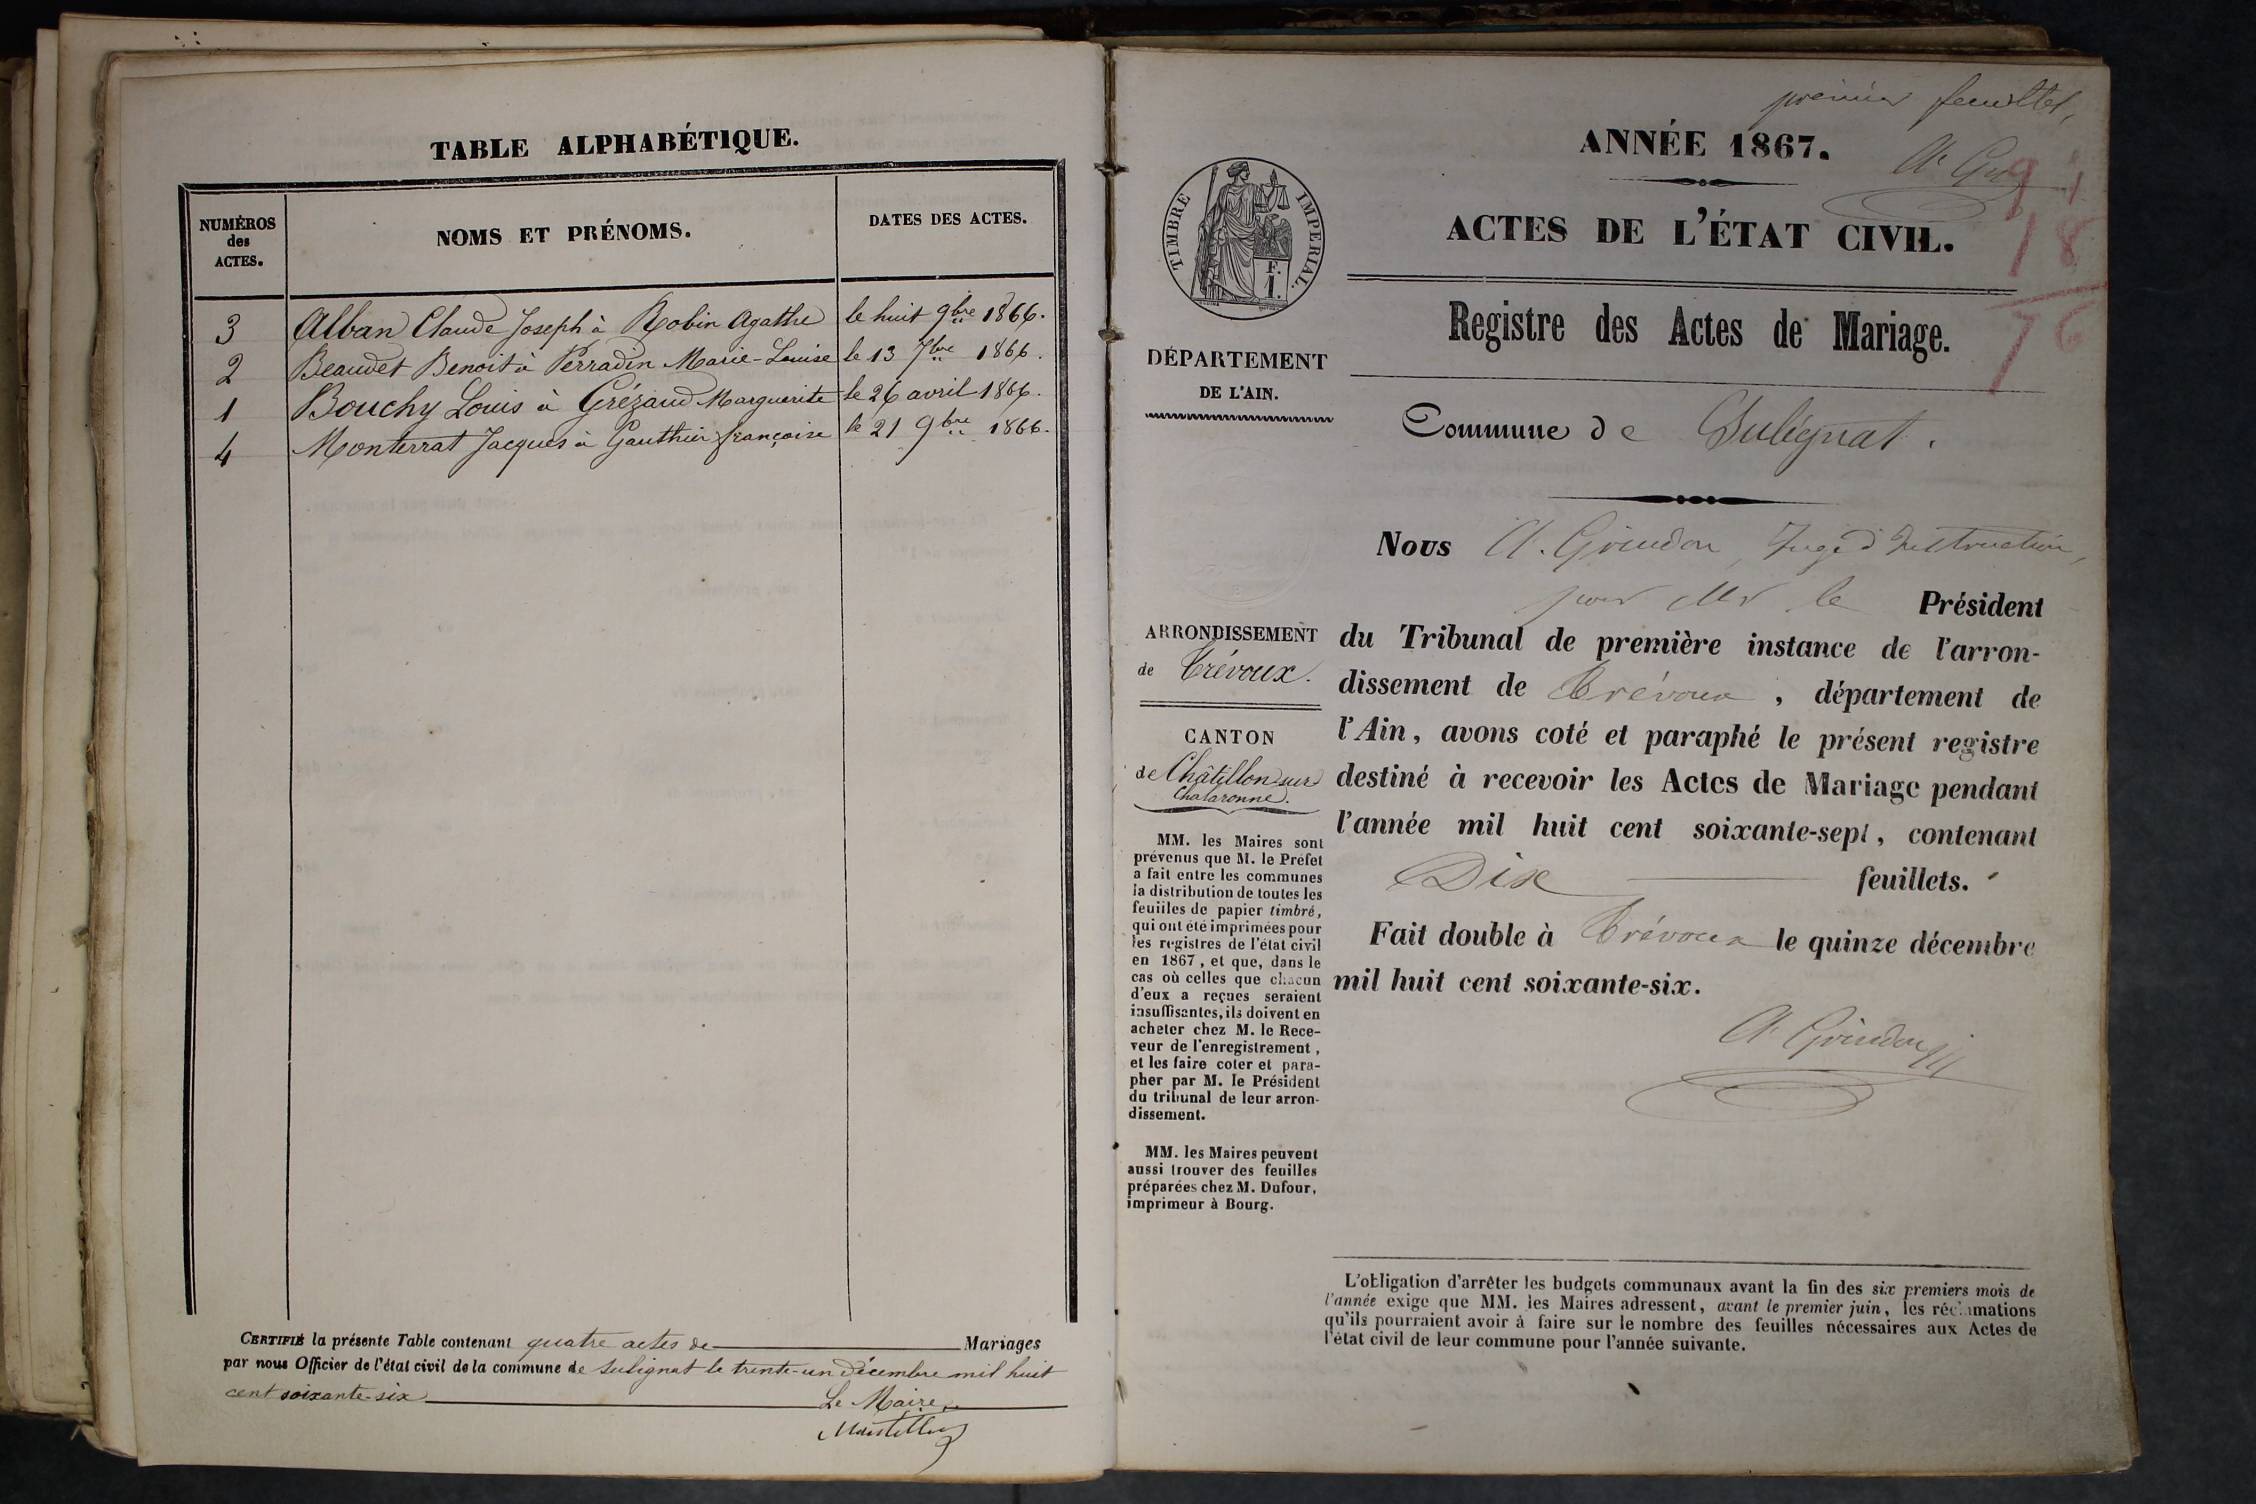 TABLE ALPHABÉTIQUE.
NUMÉROS des ACTES.
NOMS ET PRÉNOMS.
DATES DES ACTES.
3 Alban Claude Joseph à Robin Agathe le huit 9bre 1866.
2 Beaudet Benoit à Perradin Marie-Louise le 13 7bre 1866.
1 Bouchy Louis à Grézaud Marguerite le 26 avril 1866.
4 Monterrat Jacques à Gauthier françoise le 21 9bre 1866.
CERTIFIÉ la présente Table contenant quatre actes de Mariages
par nous Officier de l'état civil de la commune de Sulignat le trente-un décembre mil huit
cent soixante-six
Le Maire
premier feuillet,
ANNÉE 1867.
91
18
76
TIMBRE IMPERIAL.
F.
1.
ACTES DE L'ÉTAT CIVIL.
Registre des Actes de Mariage.
DÉPARTEMENT
DE L'AIN.
Commune de Sulignat.
Nous A. Grindon, Juge d'Instruction,
pour Mr le Président
ARRONDISSEMENT
de Trévoux.
du Tribunal de première instance de l'arron-
dissement de Trévoux, département de
l'Ain, avons coté et paraphé le présent registre
destiné à recevoir les Actes de Mariage pendant
l'année mil huit cent soixante-sept, contenant
Dix feuillets.
Fait double à Trévoux le quinze décembre
mil huit cent soixante-six.
A. Grindon
CANTON
de Châtillon-sur
Chalaronne.
MM. les Maires sont
prévenus que M. le Préfet
a fait entre les communes
la distribution de toutes les
feuilles de papier timbré,
qui ont été imprimées pour
les registres de l'état civil
en 1867, et que, dans le
cas où celles que chacun
d'eux a reçues seraient
insuffisantes, ils doivent en
acheter chez M. le Rece-
veur de l'enregistrement,
et les faire coter et para-
pher par M. le Président
du tribunal de leur arron-
dissement.
MM. les Maires peuvent
aussi trouver des feuilles
préparées chez M. Dufour,
imprimeur à Bourg.
L'obligation d'arrêter les budgets communaux avant la fin des six premiers mois de
l'année exige que MM. les Maires adressent, avant le premier juin, les réclamations
qu'ils pourraient avoir à faire sur le nombre des feuilles nécessaires aux Actes de
l'état civil de leur commune pour l'année suivante.